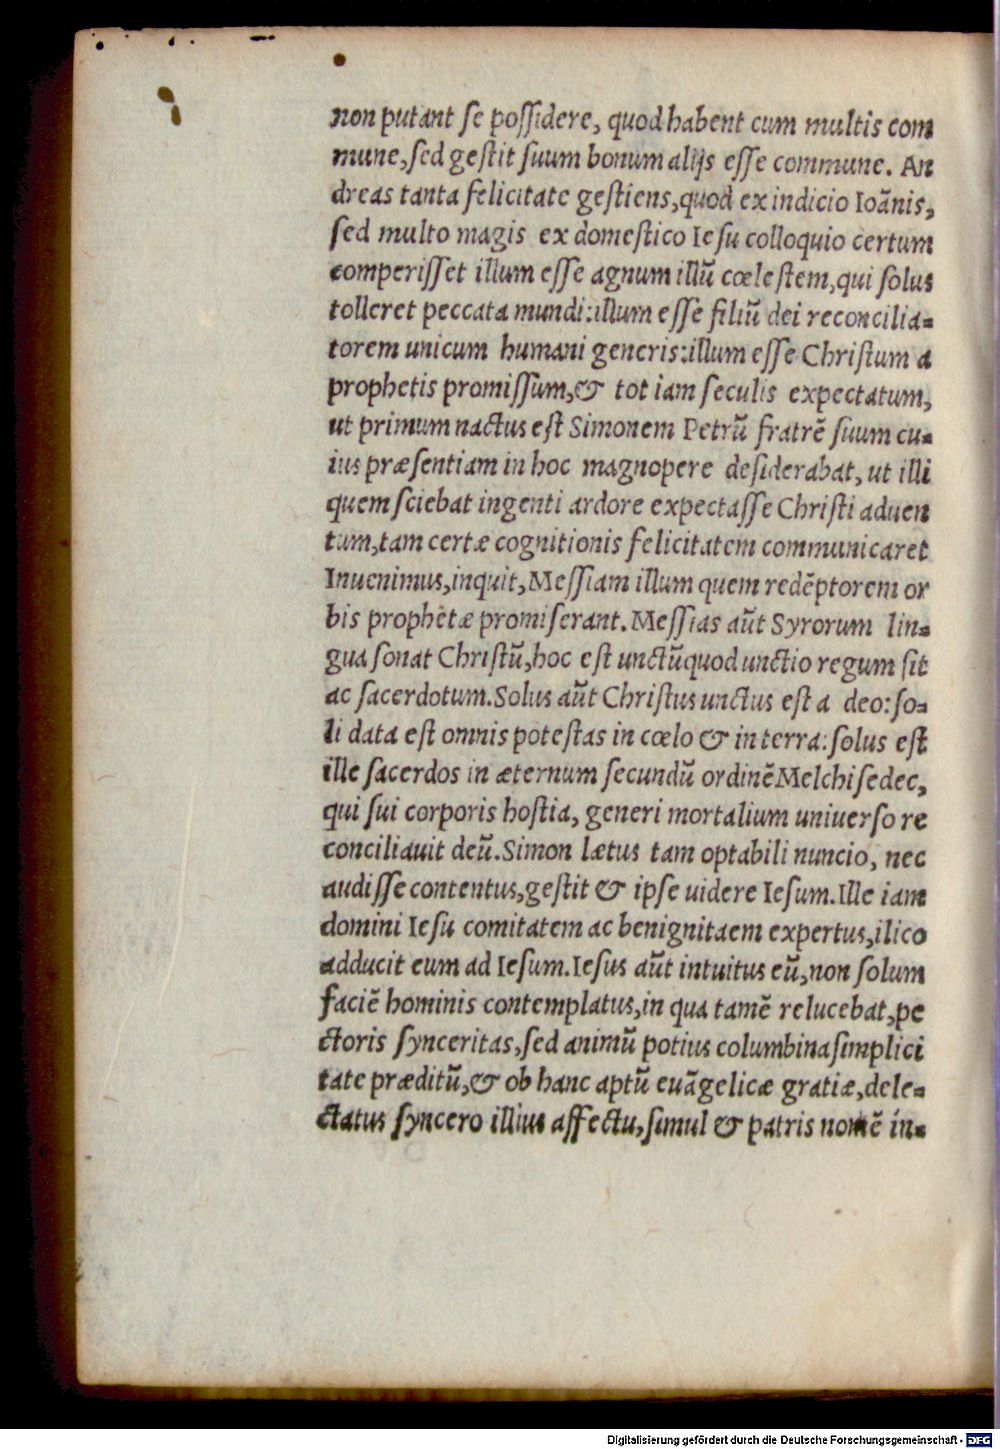 non putant se possidere, quod habent cum multis com
mune, sed gestit suum bonum alijs esse commune. An
dreas tanta felicitate gestiens, quod ex indicio Ioãnis,
sed multo magis ex domestico Iesu colloquio certum
comperisset illum esse agnum illũ cœlestem, qui solus
tolleret peccata mundi: illum esse filiũ dei reconcilia-
torem unicum humani generis: illum esse Christum a
prophetis promissum, & tot iam seculis expectatum,
ut primum nactus est Simonem Petrũ fratrẽ suum cu-
ius præsentiam in hoc magnopere desiderabat, ut illi
quem sciebat ingenti ardore expectasse Christi aduen
tum, tam certæ cognitionis felicitatem communicaret
Inuenimus, inquit, Messiam illum quem redẽptorem or
bis prophetæ promiserant. Messias aũt Syrorum lin-
gua sonat Christũ, hoc est unctũ quod unctio regum sit
ac sacerdotum. Solus aũt Christus unctus est a deo: so-
li data est omnis potestas in cœlo & in terra: solus est
ille sacerdos in æternum secundũ ordinẽ Melchisedec,
qui sui corporis hostia, generi mortalium uniuerso re
conciliauit deũ. Simon lætus tam optabili nuncio, nec
audisse contentus, gestit & ipse uidere Iesum. Ille iam
domini Iesu comitatem ac benignitaem expertus, ilico
adducit eum ad Iesum. Iesus aũt intuitus eũ, non solum
faciẽ hominis contemplatus, in qua tamẽ relucebat, pe
ctoris synceritas, sed animũ potius columbina simplici
tate præditũ, & ob hanc aptũ euãgelicæ gratiæ, dele-
ctatus syncero illius affectu, simul & patris nomẽ in-
Digitalisierung gefördert durch die Deutsche Forschungsgemeinschaft - DFG